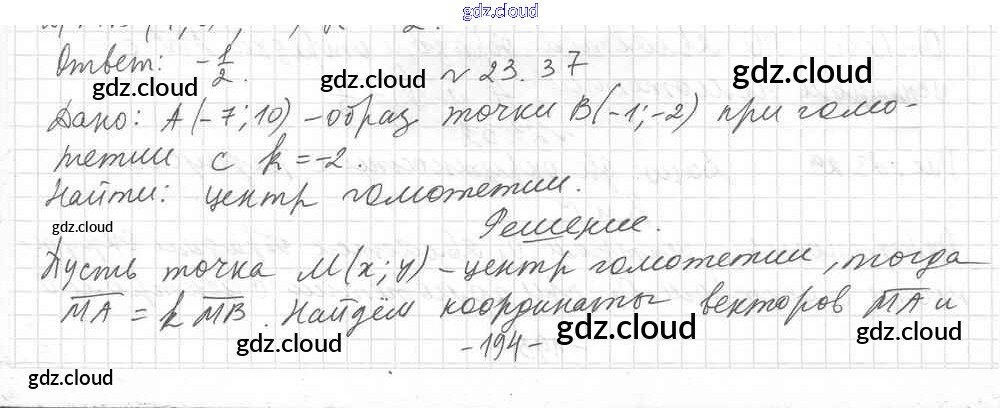 gdz.cloud
Ответ: -1/2.
gdz.cloud gdz.cloud gdz.cloud
№ 23.37
Дано: A(-7; 10) - образ точки B(-1; -2) при гомо-
тетии с k = -2.
Найти: центр гомотетии.
gdz.cloud
Решение.
Пусть точка M(x; y) - центр гомотетии, тогда
MA = k MB. Найдём координаты векторов MA и
gdz.cloud gdz.cloud gdz.cloud
-194-
gdz.cloud gdz.cloud